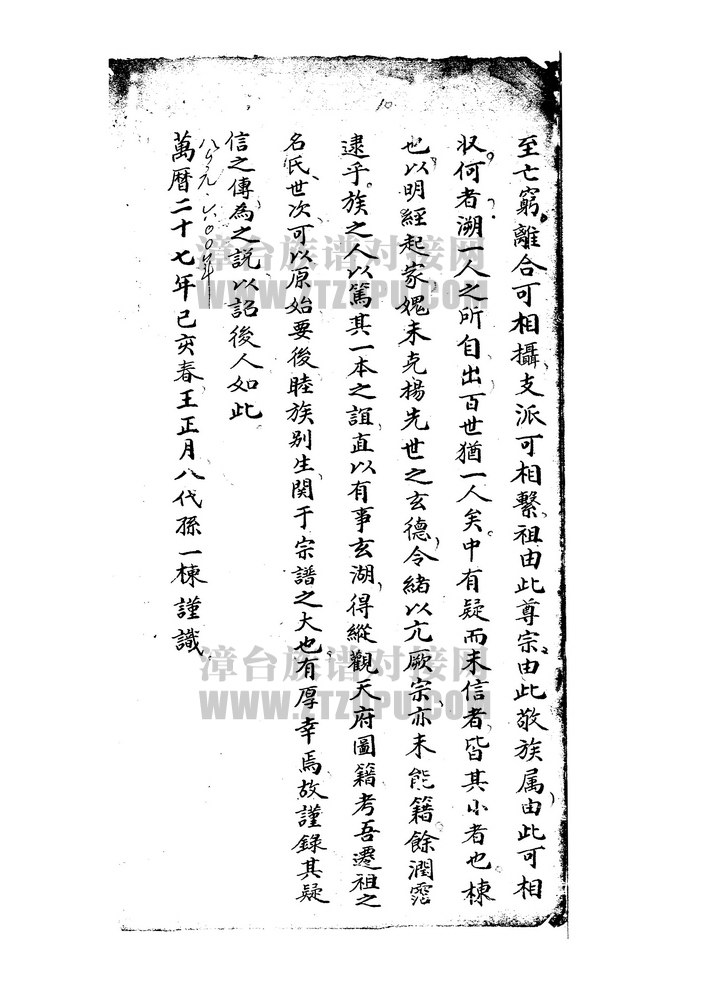 10
至亡窮離合可相攝支派可相繫祖由此尊宗由此敬族属由此可相
収何者溯一人之所自出百世猶一人矣中有疑而未信者皆其小者也棟
也以明經起家媿未克楊先世之玄德令緒以亢厥宗亦未能籍餘潤霑
逮乎族之人以篤其一本之誼直以有事玄湖得縱觀天府圖籍考吾遷祖之
名氏世次可以原始要後睦族别生関于宗譜之大也有厚幸焉故謹錄其疑
信之傳為之説以詔後人如此
萬曆二十七年己亥春王正月八代孫一棟謹識
漳台族谱对接网
WWW.ZTZUPU.COM
漳台族谱对接网
WWW.ZTZUPU.COM